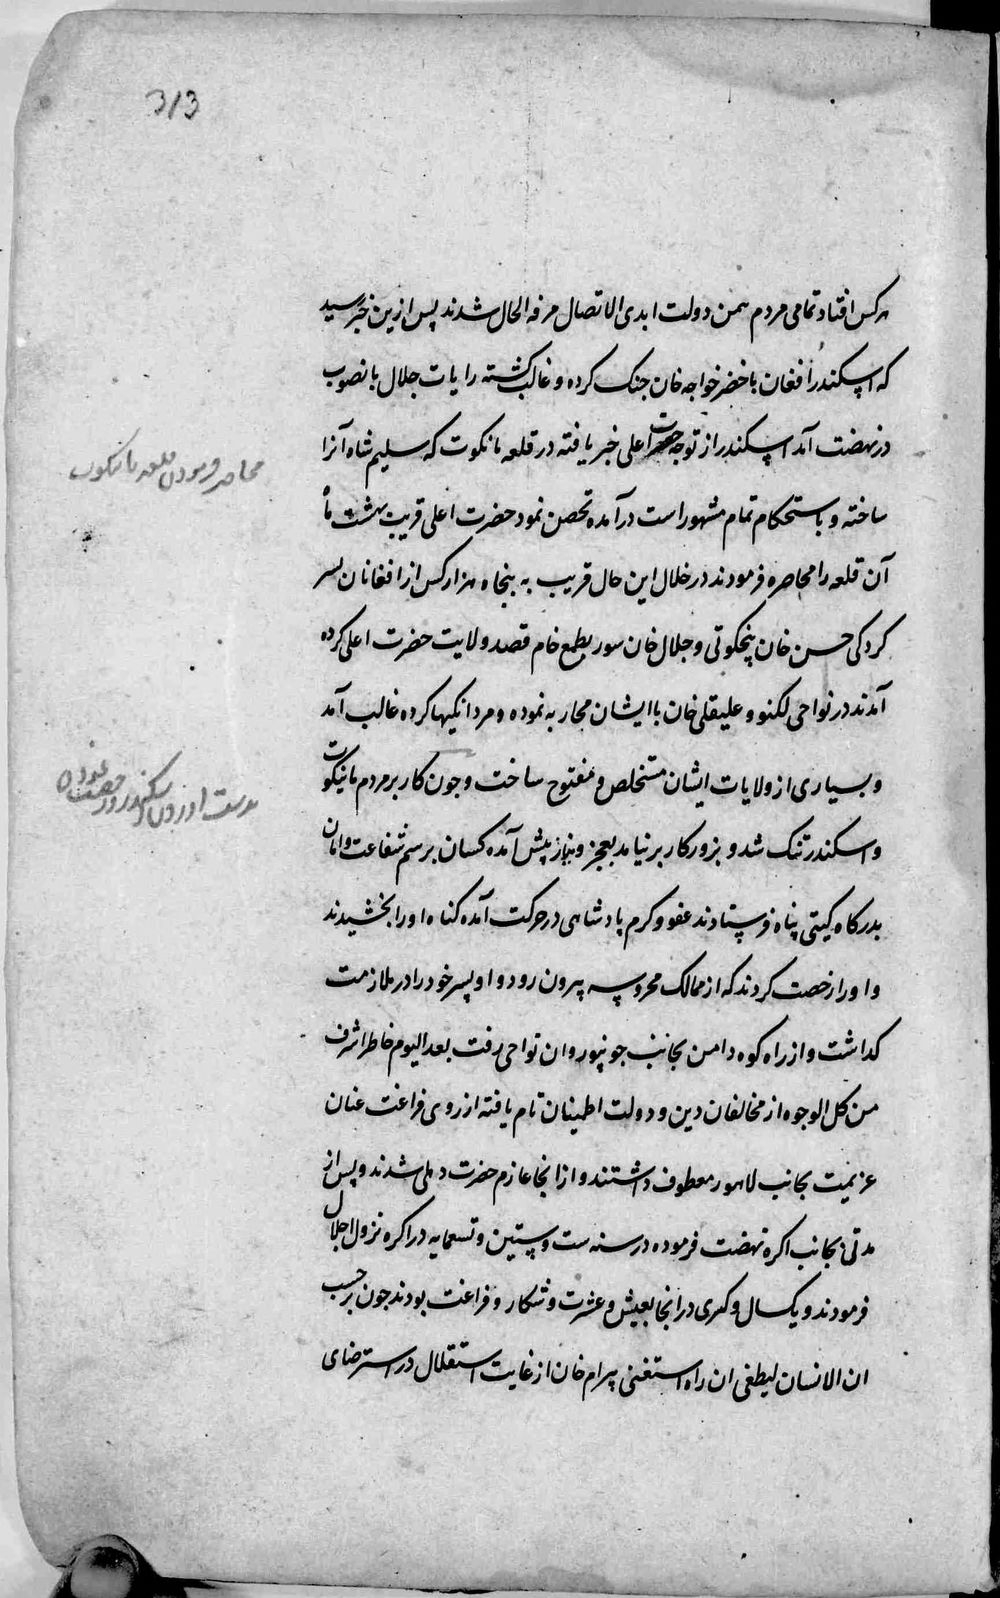 313
هرکس افتاد تمامی مردم بیمن دولت ابدی الاتصال مرفه الحال شدند پس ازین خبر رسید
که اسکندر افغان با خضر خواجه خان جنک کرده و غالب کشته رایات جلال بانصوب
در نهضت آمد اسکندر از توجه حضرت اعلی خبر یافته در قلعه مانکوت که سلیم شاه آنرا
ساخته و باستحکام تمام مشهور است درآمده تحصن نمود حضرت اعلی قریب بهشت ماه
آن قلعه را محاصره فرمودند در خلال این حال قریب به پنجاه هزار کس از افغانان بسر
کردکی حسن خان پنجکوتی و جلال خان سور بطمع خام قصد ولایت حضرت اعلی کرده
آمدند در نواحی لکنو و علیقلی خان با ایشان محاربه نموده و مردانکیها کرده غالب آمد
و بسیاری از ولایات ایشان مستخلص و مفتوح ساخت و چون کار بر مردم مانکوت
و اسکندر تنک شد و بزور کار برنیامد بعجز و نیاز پیش آمده کسان برسم شفاعت و امان
بدرکاه کیتی پناه فرستادند عفو و کرم پادشاهی در حرکت آمده کناه او را بخشیدند
و او را رخصت کردند که از ممالک محروسه بیرون رود و او پسر خود را در ملازمت
کذاشت و از راه کوه دامن بجانب جونپور و ان نواحی رفت بعد الیوم خاطر اشرف
من کل الوجوه از مخالفان دین و دولت اطمینان تام یافته از روی فراغت عنان
عزیمت بجانب لاهور معطوف داشتند و از انجا عازم حضرت دهلی شدند و پس از
مدتی بجانب اکره نهضت فرموده در سنه ست و ستین و تسعمایه در اکره نزول اجلال
فرمودند و یکسال و کسری در انجا بعیش و عشرت و شکار و فراغت بودند چون برحسب
ان الانسان لیطغی ان راه استغنی بیرام خان از غایت استقلال در استرضای
محاصره فرمودن قلعه مانکوت
بدست اوردن سکندر و رخصت نمودن